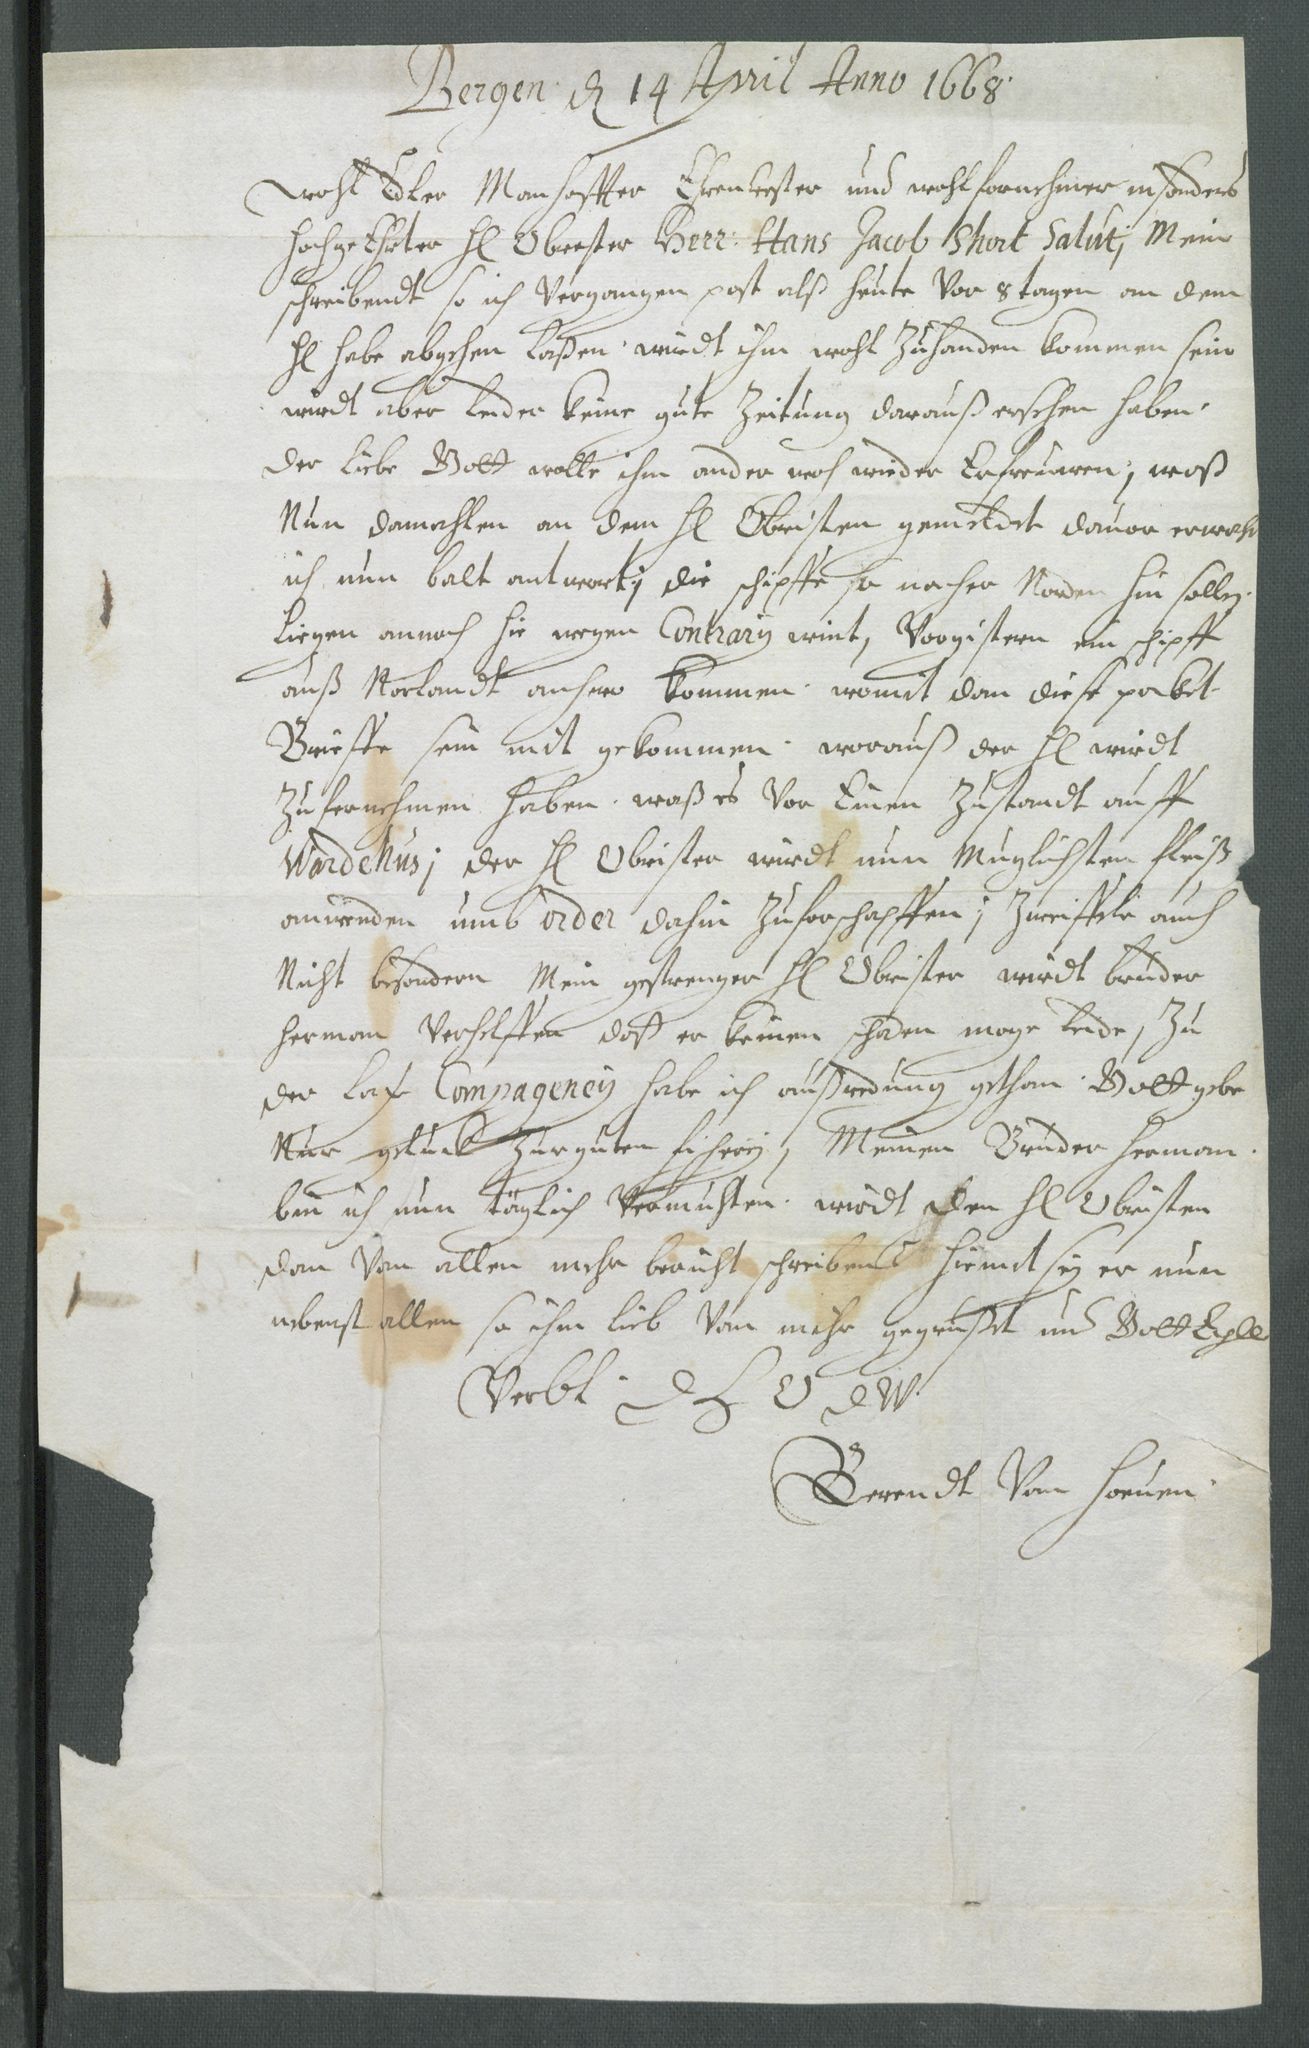 Bergen d 14 April Anno 1668
wohl Edler Manhaffter Ehrenvester und wohlfornehmer insonders
hochgeEhrter Hl Obrester Herr: Hans Jacob Short Salut; Mein
schreibendt so ich Vergangen post alß heute Vor 8 tagen an dem
Hl habe abgehen laßen wirdt ihm wohl Zuhanden kommen sein
wirdt aber leider keine gute Zeitung darauß ersehen haben.
der liebe Gott wolle ihm ander noch wieder Erfreuwen; waß
Nun damahlen an dem Hl Obristen gemeldet davor erwahr
ich nun balt antwort; die schipffe so nacher Norden hin sollen
liegen annoch hie wegen Contrarij wint, Vorgistern ein schipff
auß Norlandt anhero kommen womit dan diese packet
Brieffe sein mit gekommen. worauß der Hl wirdt
Zufernehmen haben. waß es Vor Einen Zustandt auff
Wardehus; der Hl Obrister wirdt nun Muglichsten fleiß
anwenden umb order dahin Zuforschapffen; Zweiffele auch
Nicht besondern Mein gestrenger Hl Obrister wirdt bruder
Herman Verhelffen daß er keinen schaden moge leide, Zu
der Compagency habe ich außredung gethan Gott gebe
Nur geluck Zur guten ficherij, Meinen Bruder Herman.
bin ich nun täglich Vermuhten wirdt den Hl Obristen
dan Van allen mehr bericht schreiben hiemit sey er nun
nebenst allen so ihm lieb Van mihr gegrußet und Gott
Verbl: D H O D W
Berendt Van Hoeuen